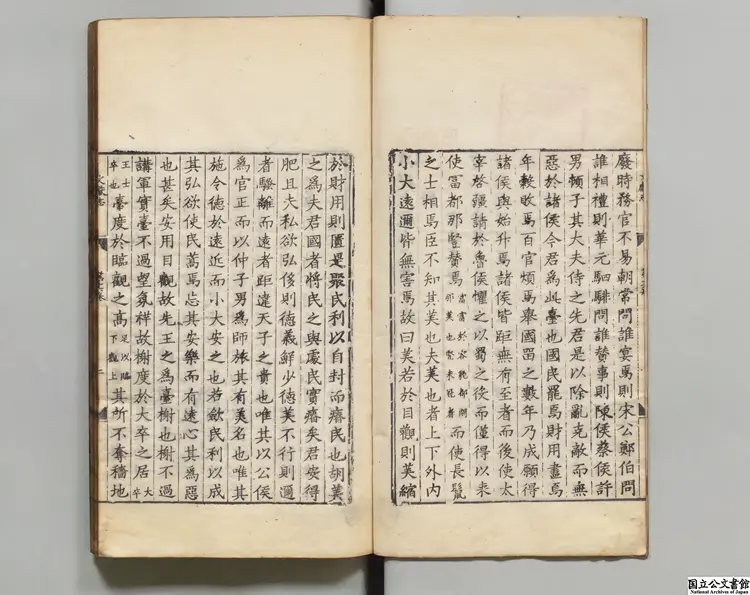 廢時務官不易朝常問誰宴焉則宋公鄭伯問
誰相禮則華元駟騑問誰贊事則陳侯蔡侯許
男頓子其大夫侍之先君是以除亂克敵而無
惡於諸侯今君爲此臺也國民罷焉財用盡焉
年穀敗焉百官煩焉舉國留之數年乃成願得
諸侯與始升焉諸侯皆距無有至者而後使太
宰啓疆請於魯侯懼之以蜀之役而僅得以來
使富都那豎贊焉富富於容貌都閑那美也豎未冠者而使長鬣
之士相焉臣不知其美也夫美也者上下外内
小大遠邇皆無害焉故曰美若於目觀則美縮
於財用則匱是聚民利以自封而瘠民也胡美
之爲夫君國者將民之與處民實瘠矣君安得
肥且夫私欲弘侈則德義鮮少德美不行則邇
者騷離而遠者距違天子之貴也唯其以公侯
爲官正而以仲子男爲師旅其有美名也唯其
施令德於遠近而小大安之也若歛民利以成
其弘欲使民蒿焉忘其安樂而有遠心其爲惡
也甚矣安用目觀故先王之爲臺榭也榭不過
講軍實臺不過望氛祥故榭度於大卒之居大卒
王士卒也臺度於臨觀之高足以臨下觀上其所不奪穡地
国立公文書館
National Archives of Japan